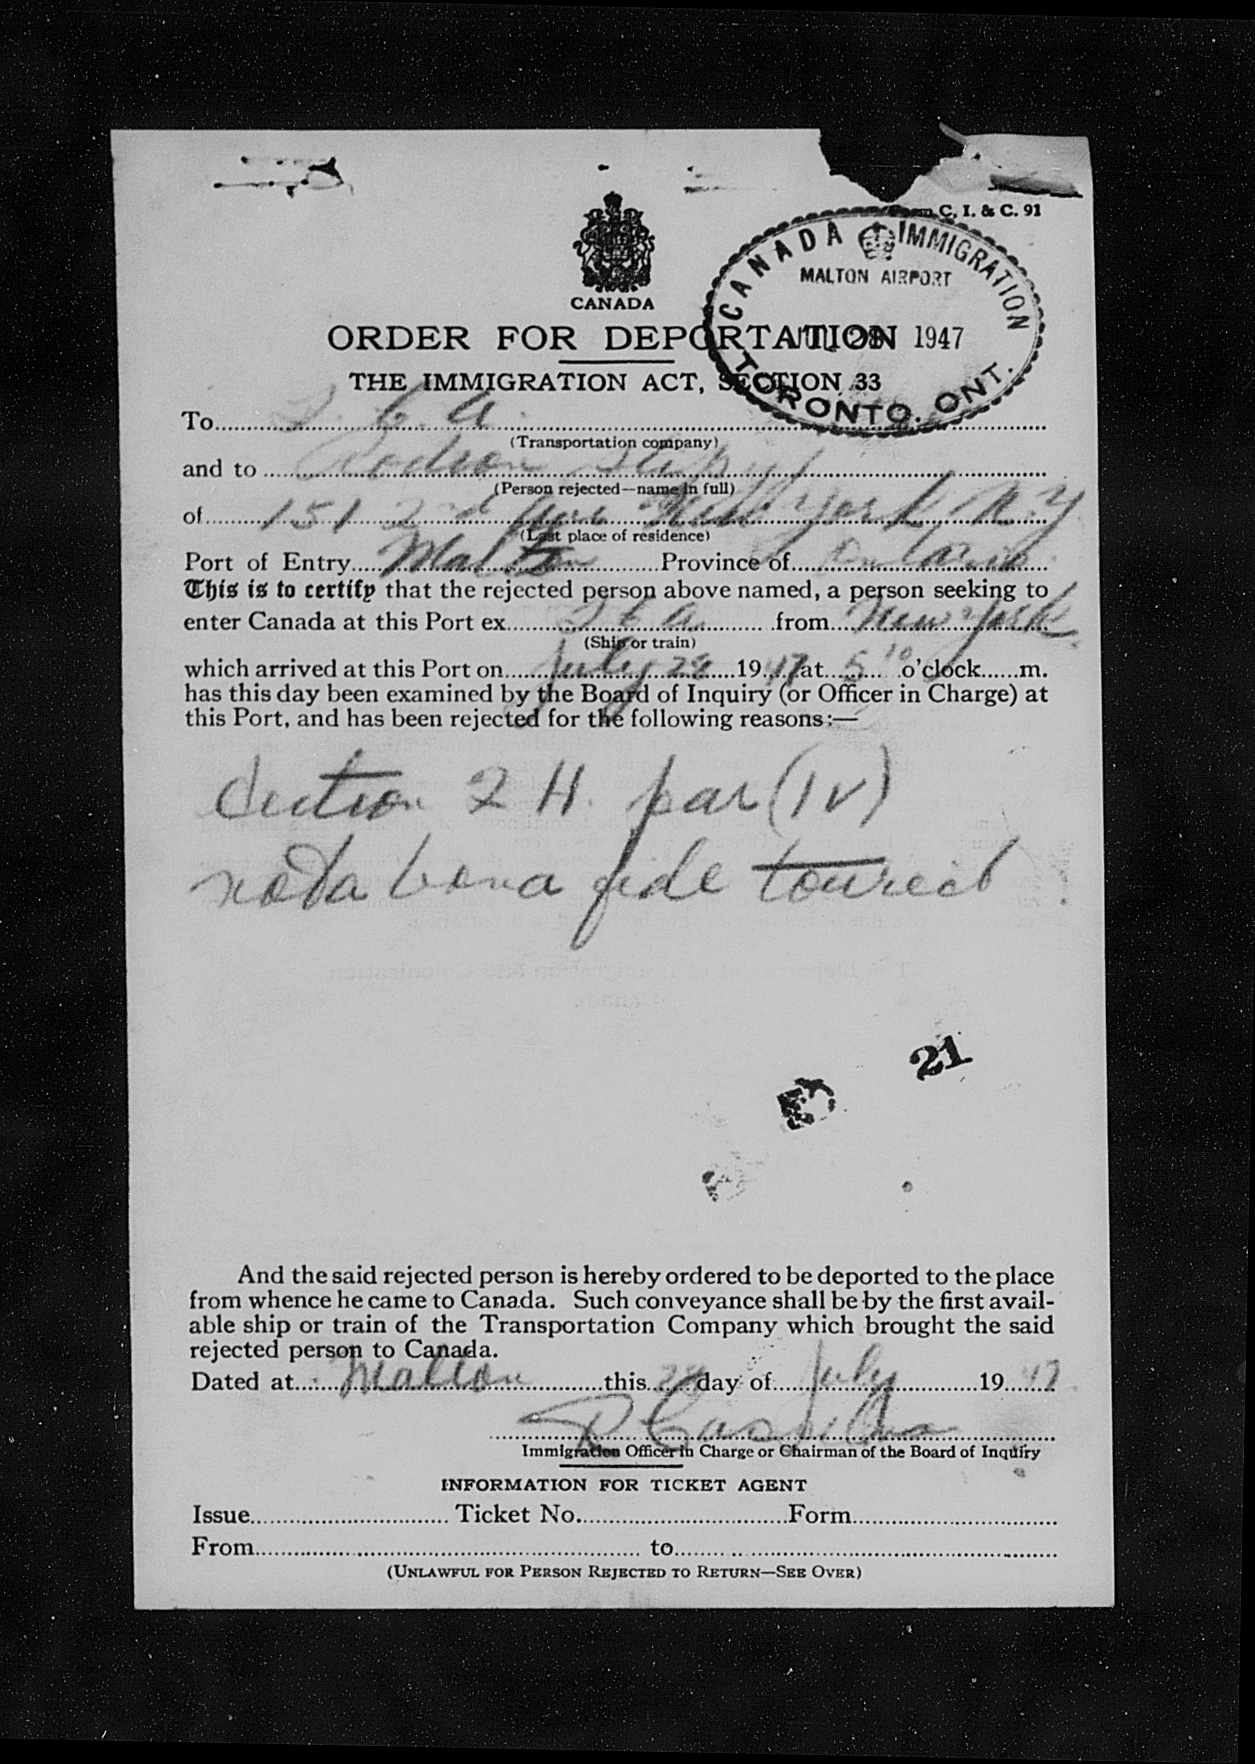 Form C. I. & C. 91
CANADA IMMIGRATION
MALTON AIRPORT
JUL 28 1947
TORONTO, ONT.
CANADA
ORDER FOR DEPORTATION
THE IMMIGRATION ACT, SECTION 33
To T. C. A.
(Transportation company)
and to
(Person rejected—name in full)
of 151 2nd Ave New York N.Y
(Last place of residence)
Port of Entry Malton Province of Ontario
This is to certify that the rejected person above named, a person seeking to
enter Canada at this Port ex. T C A. from New York
(Ship or train)
which arrived at this Port on July 28 1947 at 5 10 o'clock m.
has this day been examined by the Board of Inquiry (or Officer in Charge) at
this Port, and has been rejected for the following reasons:—
Section 2 H. par (IV)
not a bona fide tourist
21
And the said rejected person is hereby ordered to be deported to the place
from whence he came to Canada. Such conveyance shall be by the first avail-
able ship or train of the Transportation Company which brought the said
rejected person to Canada.
Dated at Malton this 28 day of July 1947
Immigration Officer in Charge or Chairman of the Board of Inquiry
INFORMATION FOR TICKET AGENT
Issue Ticket No. Form
From to
(UNLAWFUL FOR PERSON REJECTED TO RETURN—SEE OVER)